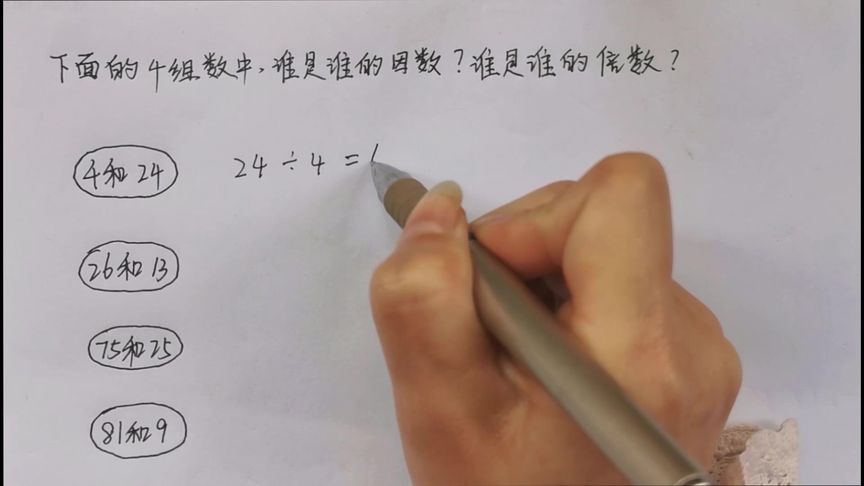 下面的4组数中,谁是谁的因数?谁是谁的倍数?
4和24 24÷4=
26和13
75和25
81和9